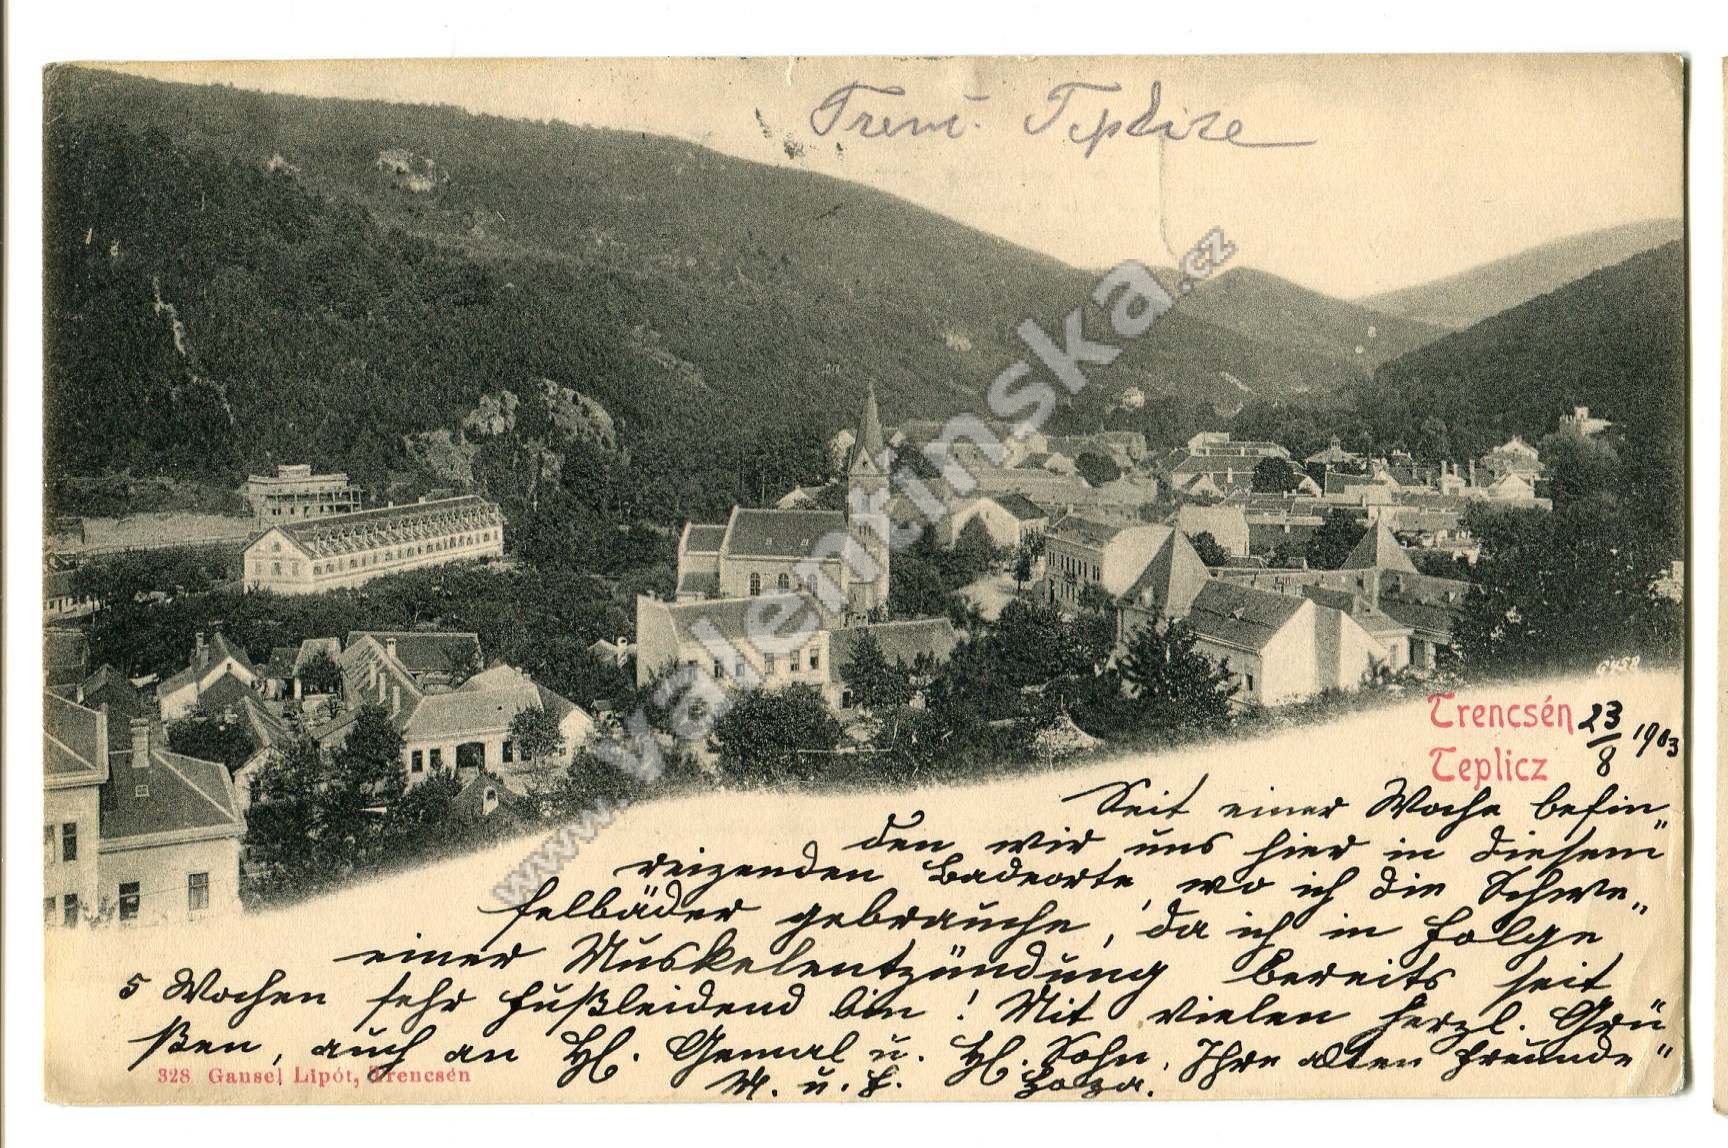 Trenč. Teplice
www.valentinska.cz
6458
Trencsén
Teplicz
23/8 1903
Seit einer Woche befin„
den wir uns hier in diesem
reizenden Badeorte, wo ich die Schwe„
felbäder gebrauche, da ich in Folge
einer Muskelentzündung bereits seit
5 Wochen sehr fußleidend bin! Mit vielen herzl. Grü„
ßen, auch an H. Gemal u. H. Sohn, Ihre alten Freunde
M. u. F.
328 Gansel Lipót, Trencsén